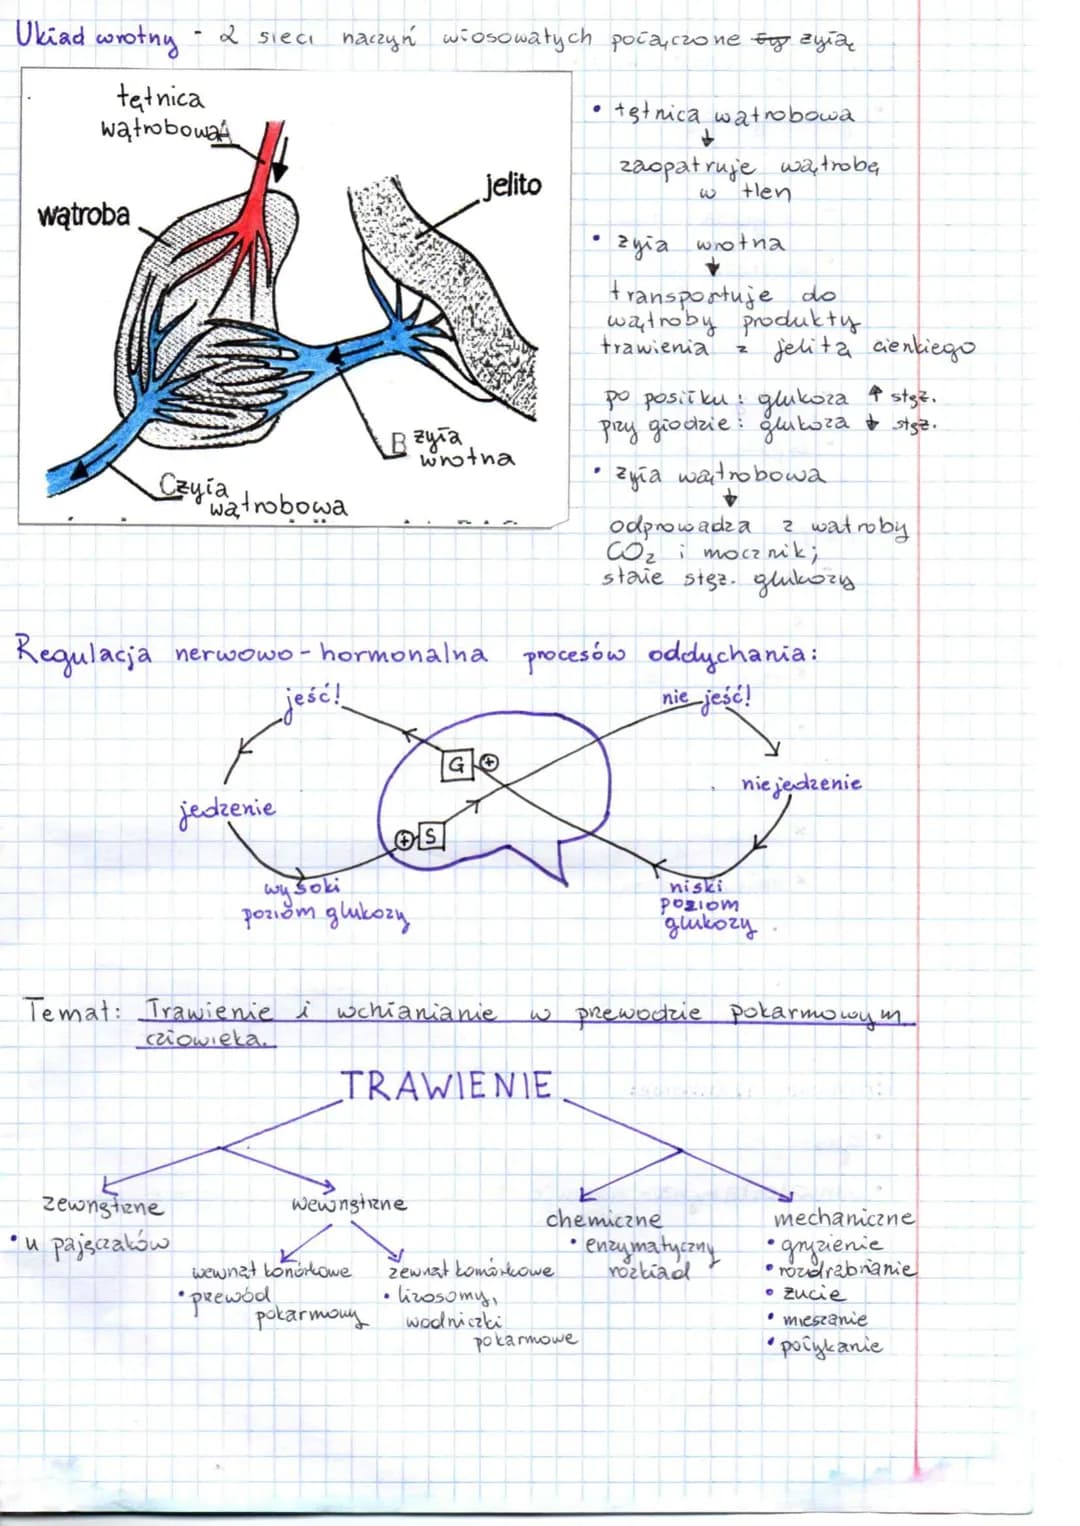 Układ wrotny - 2 sieci naczyń włosowatych połączone żyłą
tętnica
wątrobowa A
wątroba
jelito
B żyła
wrotna
C żyła
wątrobowa
• tętnica wątrobowa
↓
zaopatruje wątrobę
w tlen
• żyła wrotna
↓
transportuje do
wątroby produkty
trawienia z jelita cienkiego
po posiłku: glukoza ↑ stęż.
przy głodzie: glukoza ↓ stęż.
• żyła wątrobowa
↓
odprowadza z wątroby
CO₂ i mocznik;
stałe stęż. glukozy
Regulacja nerwowo-hormonalna procesów oddychania:
jeść!
nie jeść!
G +
niejedzenie
jedzenie
+ S
wysoki
poziom glukozy
niski
poziom
glukozy
Temat: Trawienie i wchłanianie w przewodzie pokarmowym
człowieka.
TRAWIENIE
zewnętrzne
• u pajęczaków
wewnętrzne
wewnąt komórkowe
• przewód
pokarmowy
zewnąt komórkowe
• lizosomy,
wodniczki
pokarmowe
chemiczne
• enzymatyczny
rozkład
mechaniczne
• gryzienie
• rozdrabnianie
• żucie
• mieszanie
• połykanie